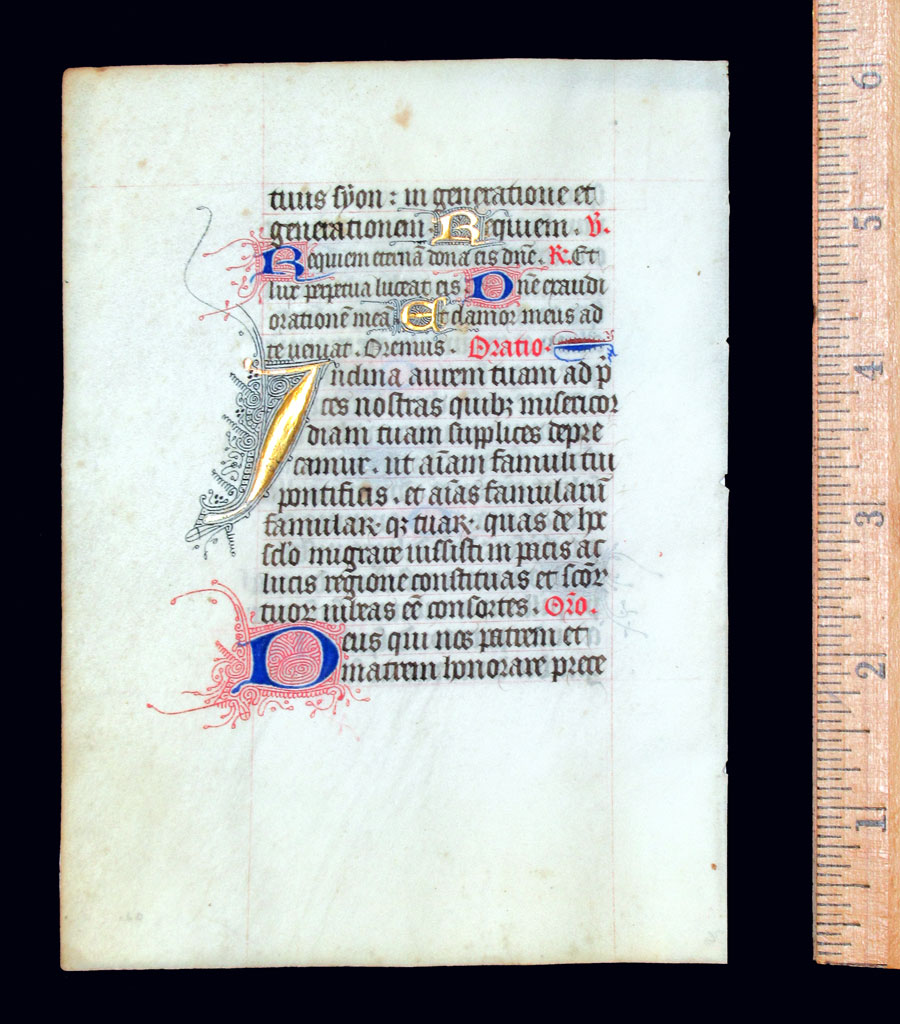 tuus sÿon : in generatione et
generationem Requiem . V.
Requiem eternā dona eis dn̄e . R. Et
lux perpetua luceat eis Dn̄e exaudi
orationē meā Et clamor meus ad
te veniat . Oremus . Oratio .
Inclina aurem tuam ad p̄
ces nostras quibꝫ misericor
diam tuam supplices depre
camur . ut aīam famuli tui
pontificis . et aīas famularū
famulaꝝ qꝫ tuaꝝ . quas de hoc
sc̄lo migrare iussisti in pacis ac
lucis regione constituas et sc̄oꝝ
tuoꝝ iubeas eē consortes . Or̄o .
Deus qui nos patrem et
matrem honorare prece
6
5
4
3
2
1